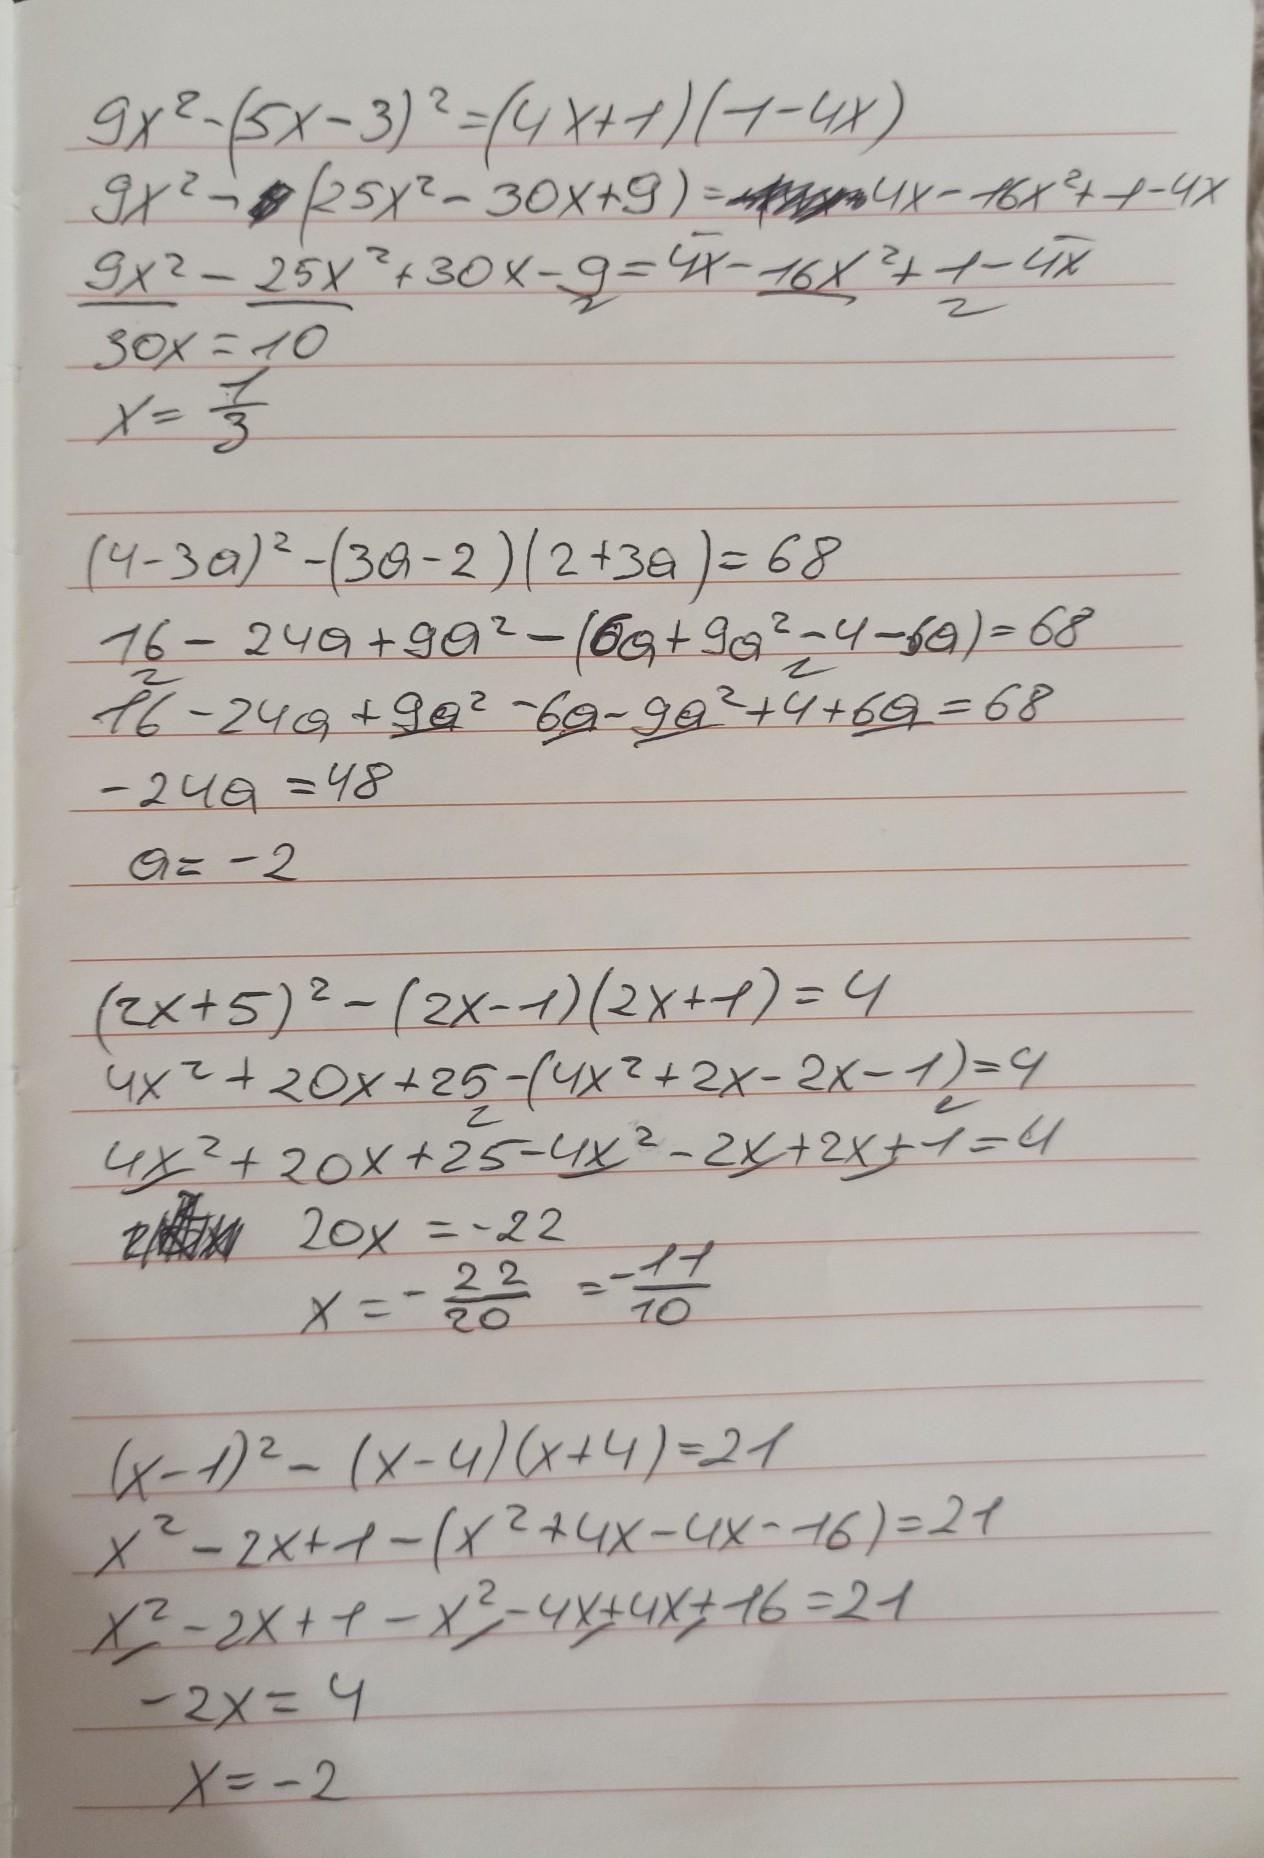 9x² - (5x - 3)² = (4x + 1)(1 - 4x)
9x² - (25x² - 30x + 9) = 4x - 16x² + 1 - 4x
9x² - 25x² + 30x - 9 = 4x - 16x² + 1 - 4x
30x = 10
x = 1/3
(4 - 3a)² - (3a - 2)(2 + 3a) = 68
16 - 24a + 9a² - (6a + 9a² - 4 - 6a) = 68
16 - 24a + 9a² - 6a - 9a² + 4 + 6a = 68
-24a = 48
a = -2
(2x + 5)² - (2x - 1)(2x + 1) = 4
4x² + 20x + 25 - (4x² + 2x - 2x - 1) = 4
4x² + 20x + 25 - 4x² - 2x + 2x + 1 = 4
20x = -22
x = - 22/20 = - 11/10
(x - 1)² - (x - 4)(x + 4) = 21
x² - 2x + 1 - (x² + 4x - 4x - 16) = 21
x² - 2x + 1 - x² - 4x + 4x + 16 = 21
-2x = 4
x = -2